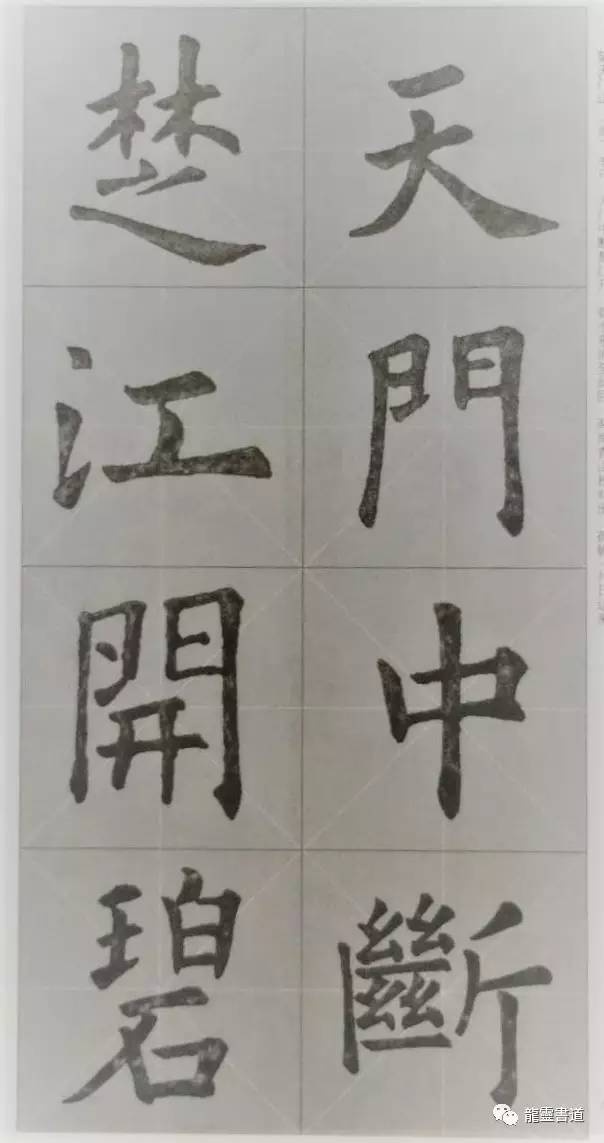 天門中斷
楚江開碧
龍靈書道